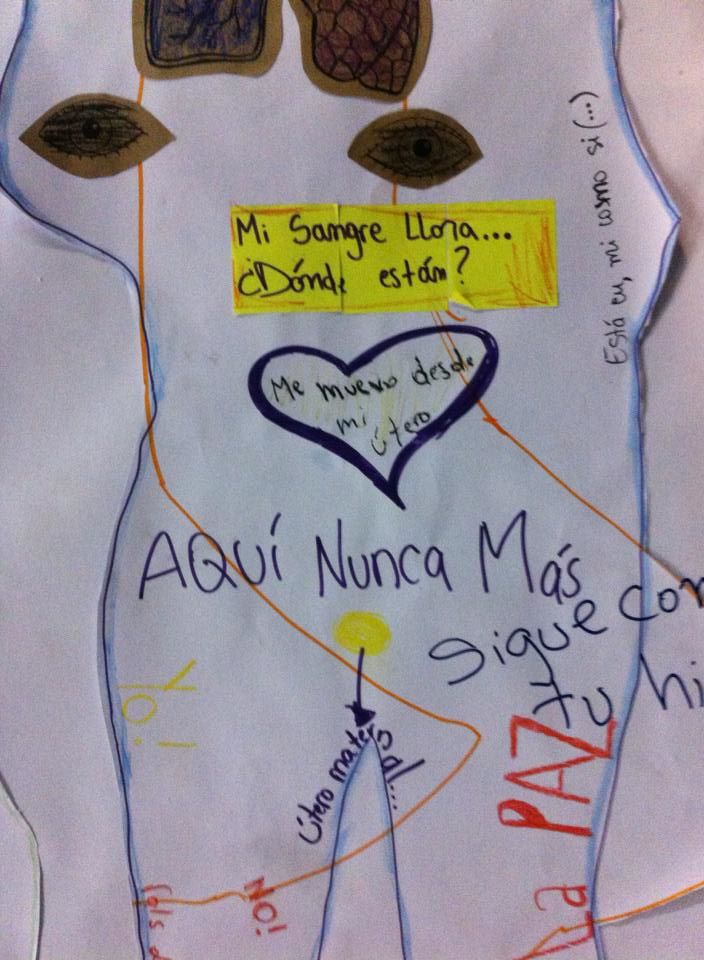 Mi Sangre Llora...
¿Dónde están?
Está en, mi como si (...)
Me muevo desde
mi
útero
AQUÍ NUNCA MÁS
sigue con
tu hi
¡Yo!
Útero mater al...
La PAZ
¡NO!